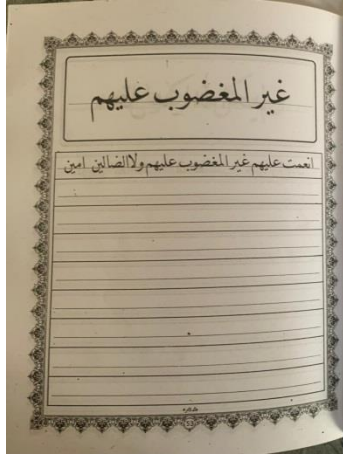 غير المغضوب عليهم
انعمت عليهم غير المغضوب عليهم ولاالضالين امين
53